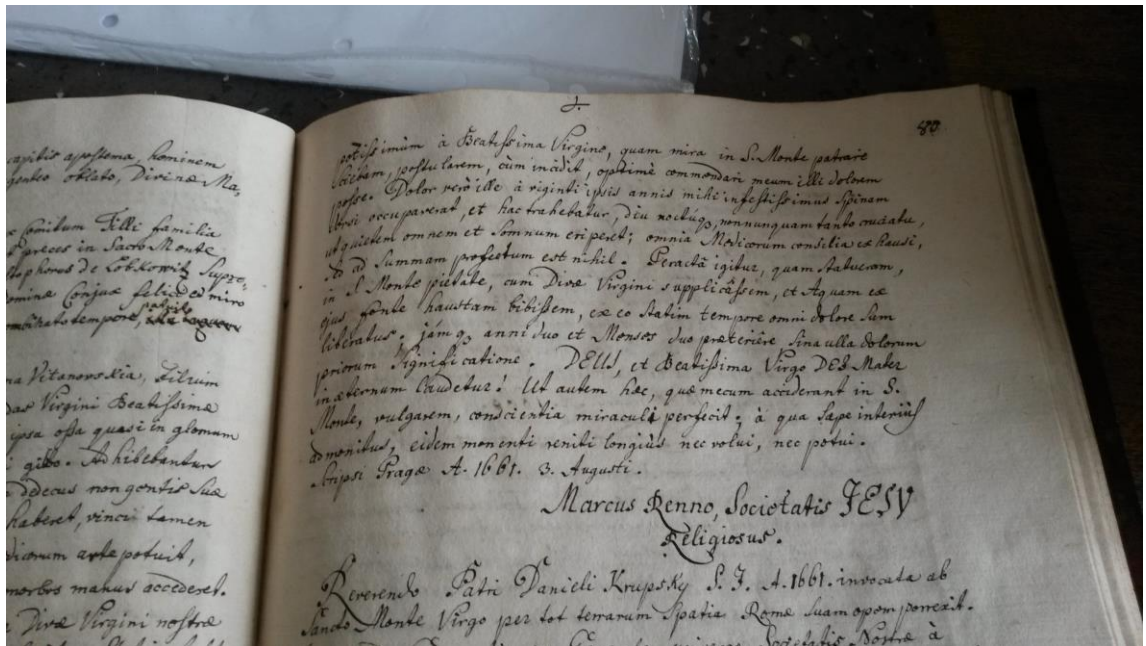 capitis apostema, hominem
argenteo oblato, Divinæ Ma,
Comitum Tilli familia
preces in Sacro Monte
stophorus de Lobkowitz Supre,
Conjux felici ed miro
tempore,
na Vitanovskia, Filium
das Virgini Beatissimæ
ipsa ossa quasi in glomum
gibbo. Adhibebantur
dedecus non gentis suæ
haberet, vinci tamen
dicorum arte potuit,
morbus manus accederet.
Divæ Virgini nostræ
80.
potissimum à Beatissima Virgine, quam mira in S. Monte patrare
sciebam, postularem, cùm incidit, optimè commendari meum illi dolorem
posse. Dolor verò ille à viginti ipsis annis mihi infestissimus Spinam
dorsi occupaverat, et hac trahebatur, diu noctúq, nonnunquam tanto cruciatu,
ut quietem omnem et Somnum eriperet; omnia Medicorum consilia ex hausi,
ad Summam profectum est nihil. Peractâ igitur, quam statueram,
in S. Monte pietate, cum Divæ Virgini supplicâssem, et Aquam ex
ejus fonte haustam bibissem, ex eo statim tempore omni dolore sum
liberatus. jámq, anni duo et Menses duo præteriêre sine ulla dolorum
priorum Significatione. DEUS, et Beatissima Virgo DEI Mater
in æternum laudetur! Ut autem hæc, quæ mecum acciderant in S.
Monte, vulgarem, conscientia miraculi perfecit; à qua sæpe interiùs
admonitus, eidem monenti reniti longiùs nec volui, nec potui.
Scripsi Pragæ A. 1661. 3. Augusti.
Marcus Renno, Societatis JESV
Religiosus.
Reverendo Patri Danieli Krupsky S. J. A. 1661. invocata ab
Sancto Monte Virgo per tot terrarum Spatia Romæ suam opem porrexit.
Societatis Nostræ à